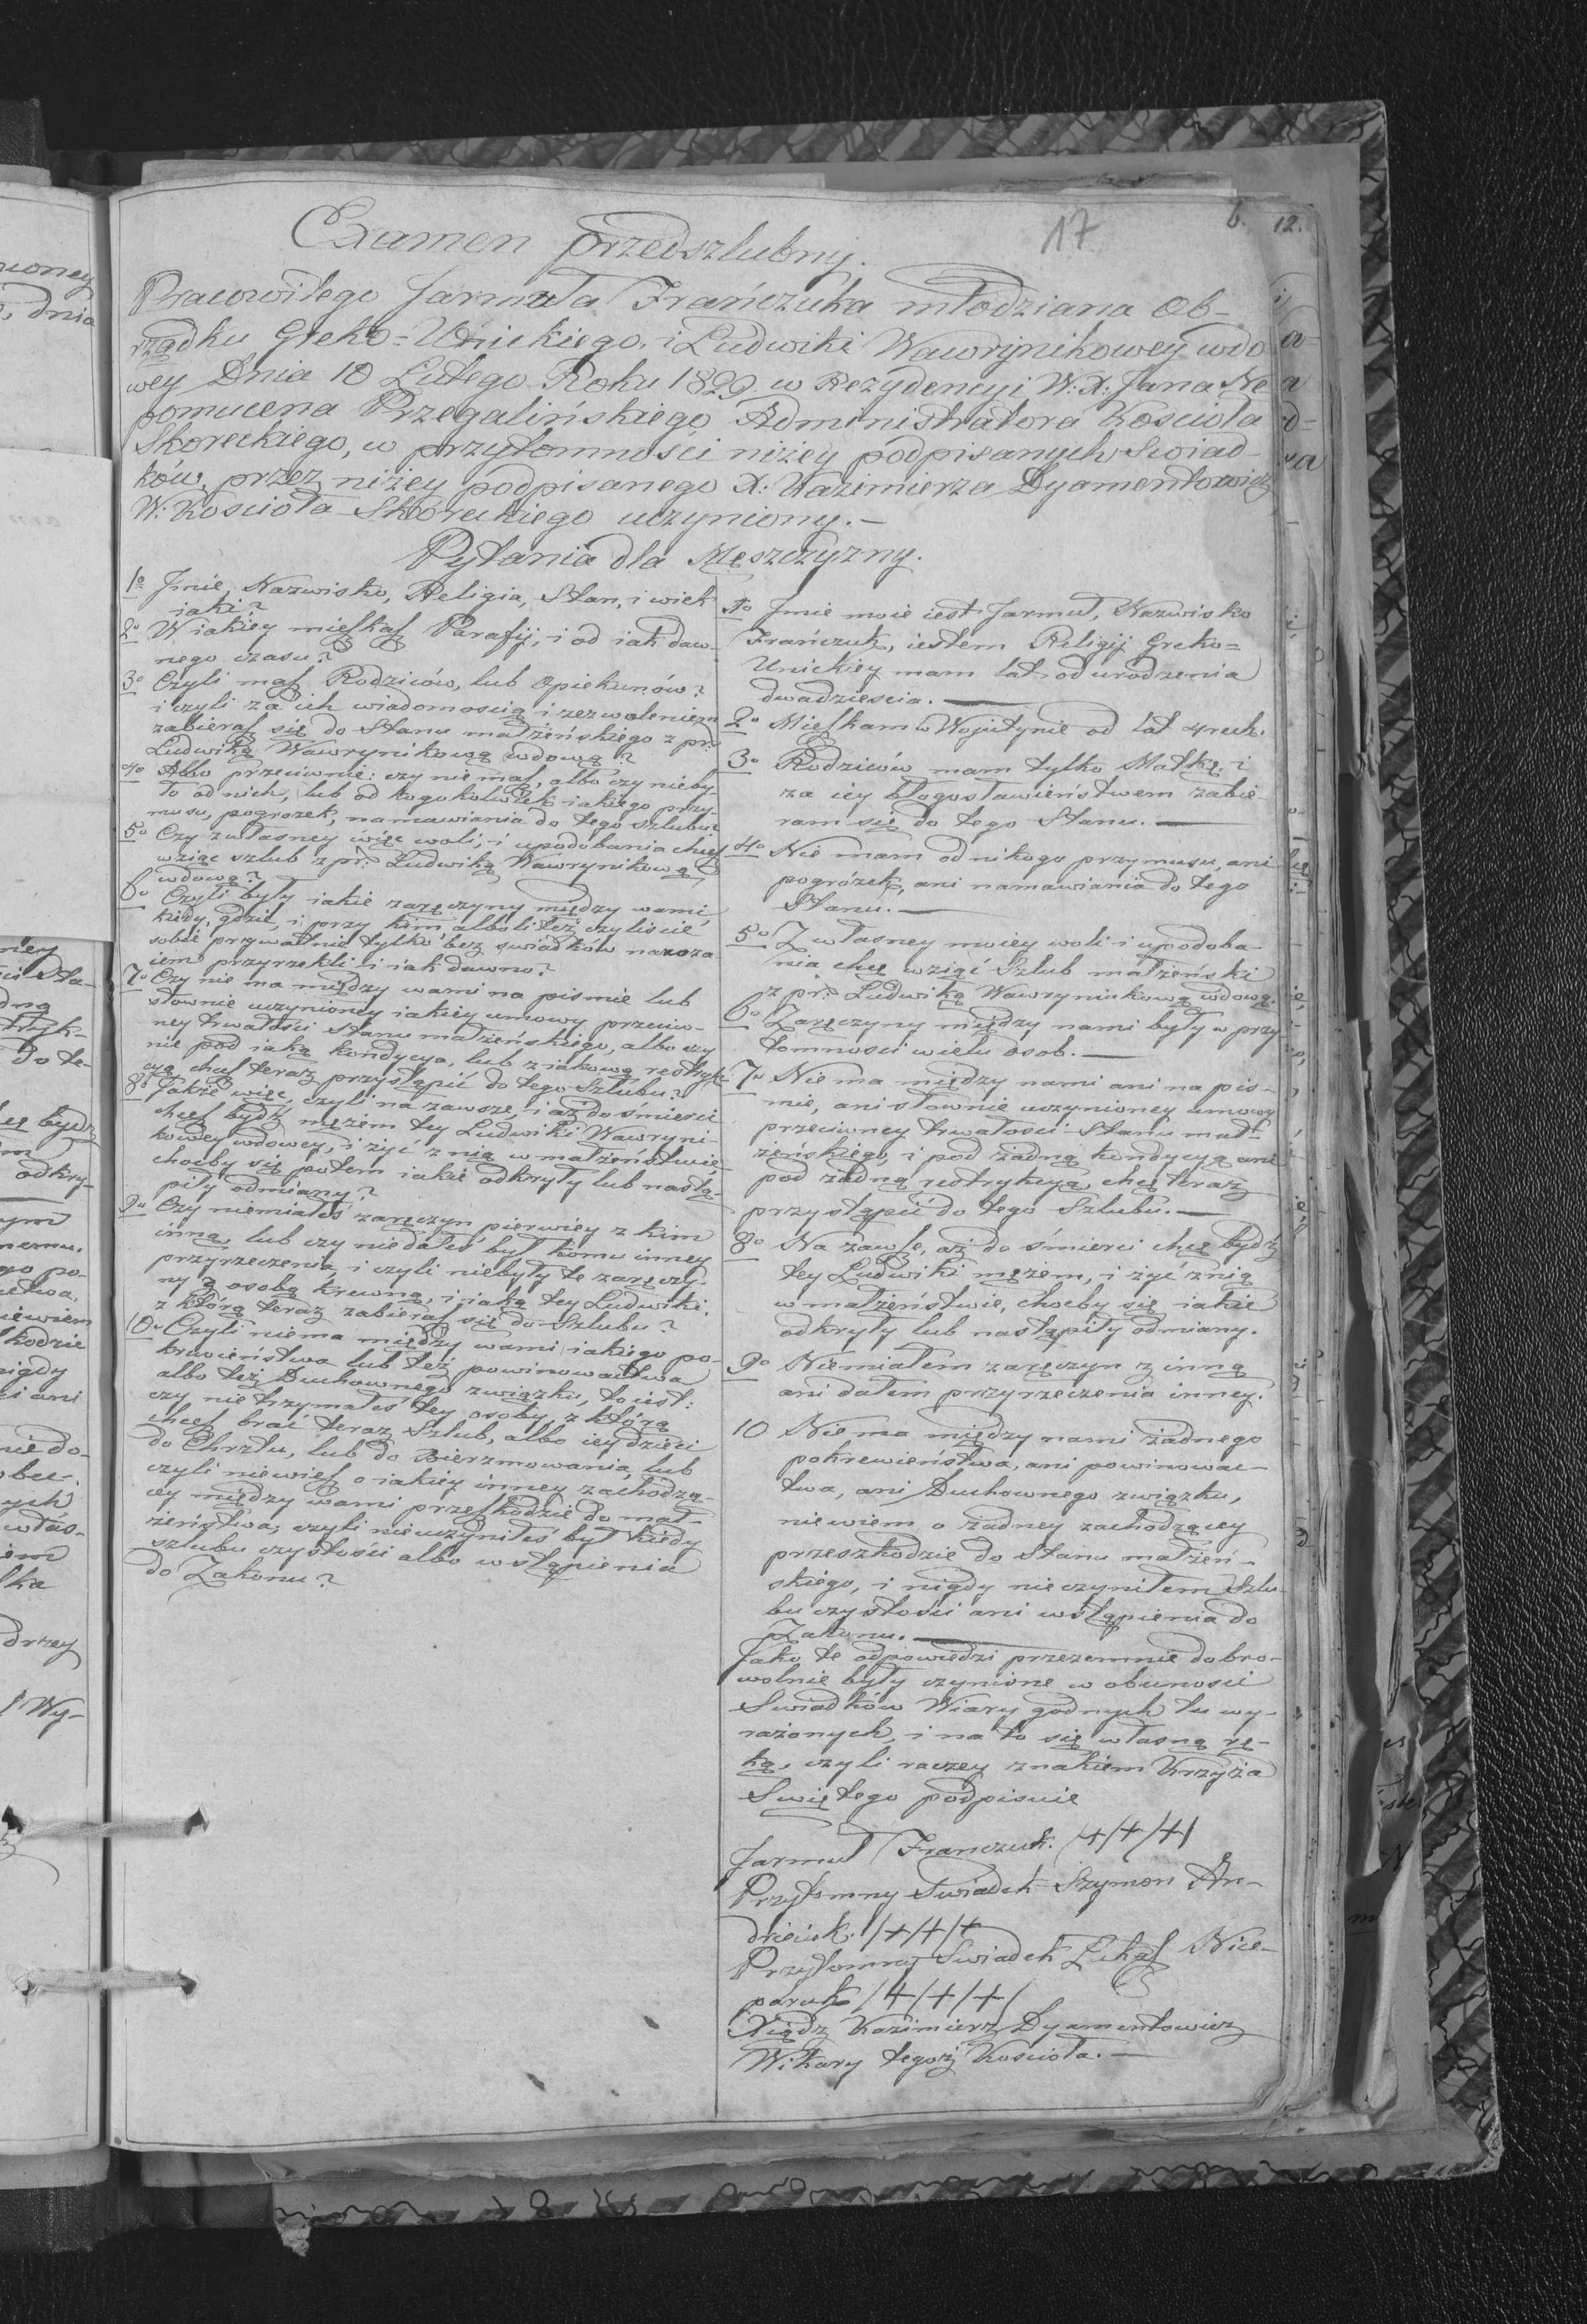 17
6. 12.
Examen przedszlubny.
Pracowitego Jarmuła Frańczuka młodziana Ob-
rządku Greko=Unickiego, i Ludwiki Wawrynikowey wdo
wey Dnia 10 Lutego Roku 1829 w Rezydencyi W: X: Jana Ne
pomucena Przegalińskiego Administratora Koscioła
Skoreckiego, w przytomności niżey podpisanych Swiad-
ków, przez niżey podpisanego X: Kazimierza Dyamentowicz
W: Koscioła Skoreckiego uczyniony.—
Pytania dla Męszczyzny.
1o Jmie, Nazwisko, Religia, Stan, i wiek
iaki?
2o W iakiey mieſkaſ Parafij, i od iak daw-
nego czasu?
3o Czyli maſ Rodziców, lub Opiekunów?
i czyli za ich wiadomoscią i zezwoleniem
zabieraſ się do Stanu małżeńskiego z pr:
Ludwiką Wawrynikową wdową?
4o Albo przeciwnie: czy nie maſ, albo czy nieby-
ło od nich, lub od kogokolwiek iakiego przy-
musu, pogrozek, namawiania do tego szlubu?
5o Czy z własney więc woli, i upodobania chceſ
wziąc szlub z pr: Ludwiką Wawrynikową
wdową?
6o Czyli były iakie zaręczyny między wami
kiedy, gdzie, i przy kim albo li też czyliscie
sobie prywatnie tylko bez swiadków nawza
iem przyrzekli i iak dawno?
7o Czy nie ma między wami na pismie lub
słownie uczynioney iakiey umowy przeciw-
ney trwałości Stanu małżeńskiego, albo czy
nie pod iaką kondycyą, lub z iakową restryk-
cyą chceſ teraz przystąpić do tego Szlubu?
8o Także więc, czyli na zawsze, i aż do śmierci
chceſ bydź mężem tey Ludwiki Wawryni-
kowey wdowey, i żyć z nią w małżeństwie
choćby się potem iakie odkryły lub nastą-
piły odmiany?
9o Czy niemiałeś zaręczyn pierwiey z kim
inną, lub czy niedałeś był komu inney
przyrzeczenia i czyli niebyły te zaręczy-
ny z osobą krewną, i iaką tey Ludwiki,
z którą teraz zabieraſ się do Szlubu?
10o Czyli niema między wami iakiego po-
krewieństwa lub też powinowactwa
albo też Duchownego związku, to iest:
czy nie trzymałeś tey osoby, z którą
chceſ brać teraz Szlub, albo iey dzieci
do Chrztu, lub do Bierzmowania lub
czyli niewieſ o iakiey inney zachodzą-
cey między wami przeſkodzie do mał-
żeństwa; czyli nieuczyniłeś był kiedy
szlubu czystości albo wstąpienia
do Zakonu?
1o Jmie moie iest Jarmuł, Nazwisko
Frańczuk, iestem Religij Greko=
Unickiey mam lat od urodzenia
dwadziescia.—
2o Mieſkam w Wojutynie od lat 4rech.
3o Rodziców mam tylko Matkę i
za iey błogosławieństwem zabie-
ram się do tego Stanu.—
4o Nie mam od nikogo przymusu, ani
pogrózek, ani namawiania do tego
Stanu.—
5o Z własney moiey woli i upodoba-
nia chcę wziąć Szlub małżeński
z pr: Ludwiką Wawryniukową wdową.
6o Zaręczyny między nami były w przy-
tomności wielu osob.—
7o Nie ma między nami ani na pis-
mie, ani słownie uczynioney umowy
przeciwney trwałości Stanu mał-
żeńskiego, i pod żadną kondycyą ani
pod żadną restrykcyą, chcę teraz
przystąpić do tego Szlubu.—
8o Na zawſe, aż do śmierci chcę bydź
tey Ludwiki mężem, i żyć z nią
w małżeństwie, choćby się iakie
odkryły lub nastąpiły odmiany.
9o Niemiałem zaręczyn z inną
ani dałem przyrzeczenia inney.
10 Niema między nami żadnego
pokrewieństwa, ani powinowac-
twa, ani Duchownego związku,
niewiem o żadney zachodzącey
przeszkodzie do Stanu małżeń-
skiego, i nigdy nie czyniłem Szlu-
bu czystości ani wstąpienia do
Zakonu.—
Jako te odpowiedzi przezemnie dobro-
wolnie były czynione w obecnosci
Swiadków Wiary godnych tu wy-
rażonych, i na to się własną rę-
ką, czyli raczey znakiem Krzyża
Swiętego podpisuie
Jarmuł Franczuk. /+/+/+/
Przytomny Swiadek Szymon An-
dreiuk. /+/+/+
Przytomny Swiadek Łukaſ Nice-
poruk /+/+/+/
Xiądz Kazimierz Dyamentowicz
Wikary tegoż Koscioła.—